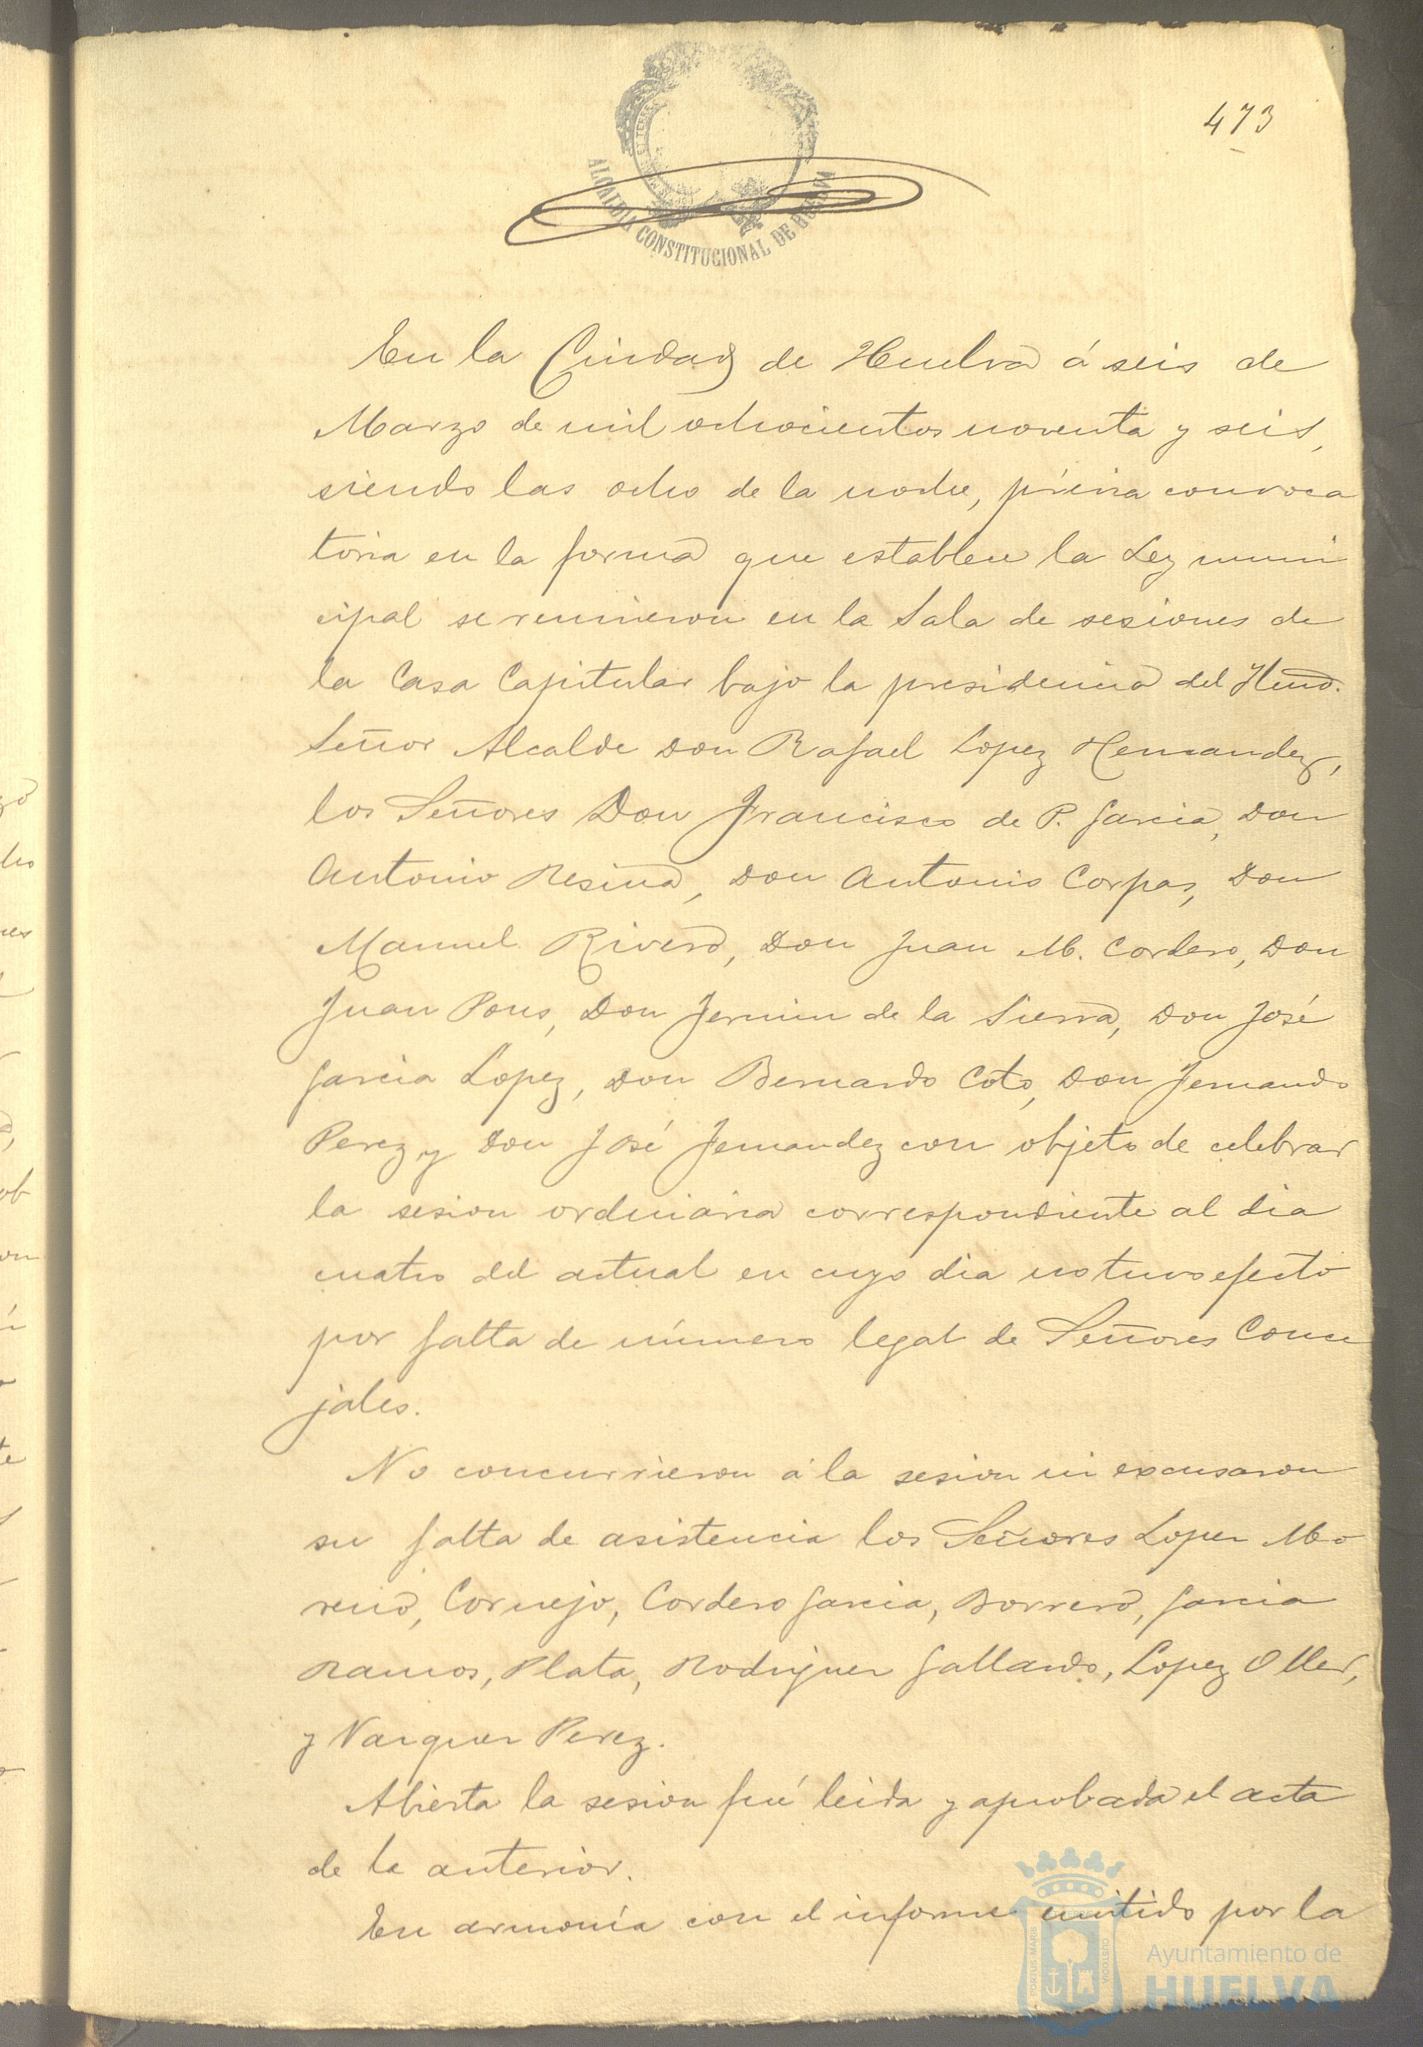 473
ALCALDIA CONSTITUCIONAL DE HUELVA
En la Ciudad de Huelva á seis de
Marzo de mil ochocientos noventa y seis,
siendo las ocho de la noche, prévia convoca
toria en la forma que establece la Ley muni
cipal se reunieron en la Sala de sesiones de
la Casa Capitular bajo la presidencia del Iltmo.
Señor Alcalde Don Rafael Lopez Hernandez,
los Señores Don Francisco de P. Garcia, Don
Antonio Resina, Don Antonio Corpas, Don
Manuel Rivero, Don Juan M. Cordero, Don
Juan Pons, Don Fermin de la Sierra, Don José
Garcia Lopez, Don Bernardo Coto, Don Fernando
Perez y Don José Fernandez con objeto de celebrar
la sesion ordinaria correspondiente al dia
cuatro del actual en cuyo dia no tuvo efecto
por falta de número legal de Señores Conce
jales.
No concurrieron á la sesion ni excusaron
su falta de asistencia los Señores Lopez Mo-
reno, Cornejo, Cordero Garcia, Borrero, Garcia
Ramos, Plata, Rodriguez Gallardo, Lopez Oller,
y Vazquez Perez.
Abierta la sesion fué leida y aprobada el acta
de la anterior.
En armonía con el informe emitido por la
Ayuntamiento de
HUELVA